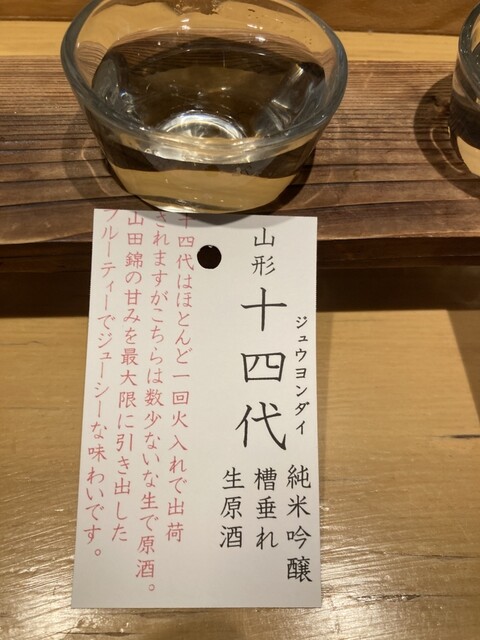 山形
十四代
ジュウヨンダイ
純米吟醸
槽垂れ
生原酒
十四代はほとんど一回火入れで出荷
されますがこちらは数少ないな生で原酒。
山田錦の甘みを最大限に引き出した
フルーティーでジューシーな味わいです。